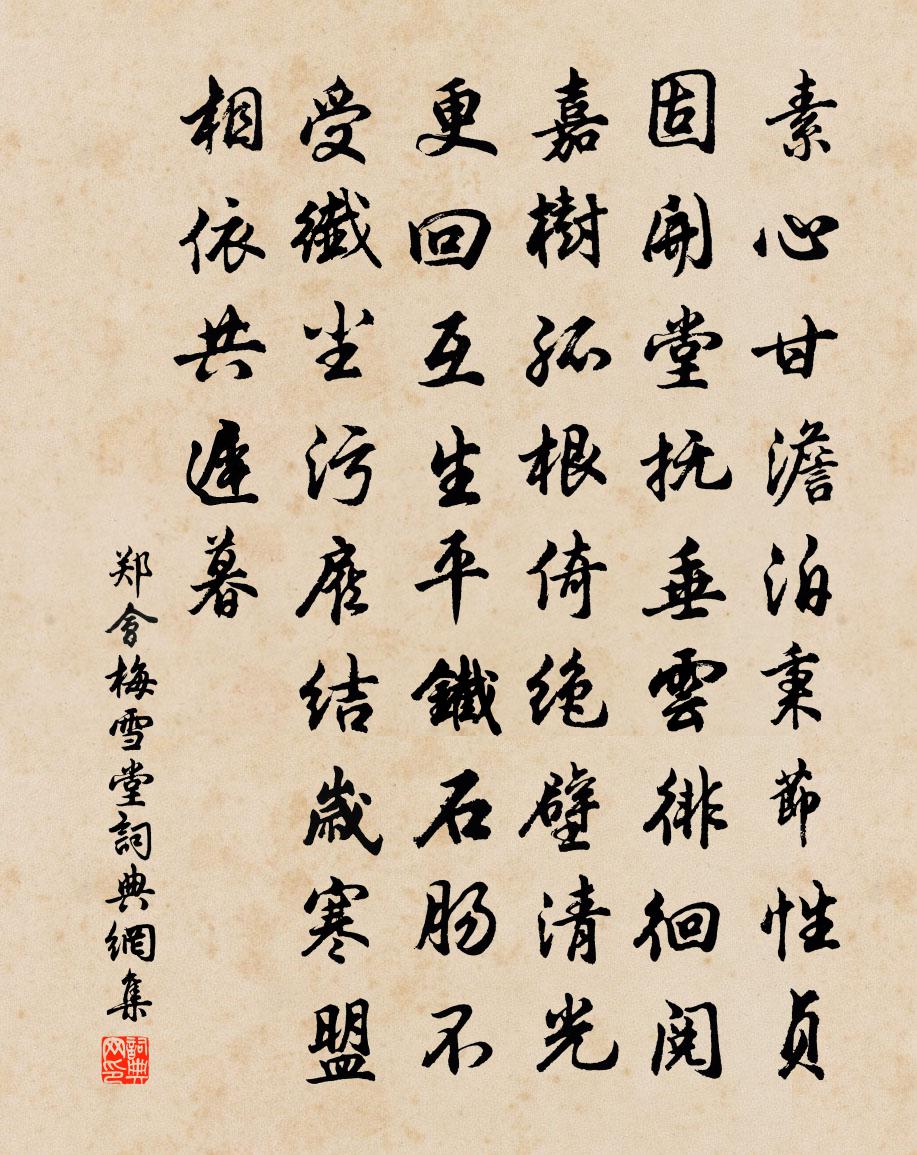 素心甘澹泊秉節性貞
固開堂抚垂雲徘徊阅
嘉樹孤根倚绝壁清光
更回互生平鐵石肠不
受纖尘污庶结歲寒盟
相依共遲暮
郑會梅雪堂詞典網集
詞典网印